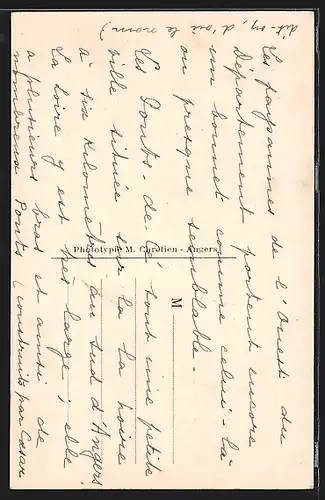 Les paysannes de l'Ouest du
Département portent encore
un bonnet comme celui-là
ou presque semblable.
Les Ponts-de-Cé sont une petite
ville située sur la Loire
à six kilomètres au sud d'Angers.
La Loire y est très large ; elle
a plusieurs bras et aussi de
nombreux Ponts (construits par César
dit-on, d'où le nom)
Phototypie M. Chrétien - Angers
M